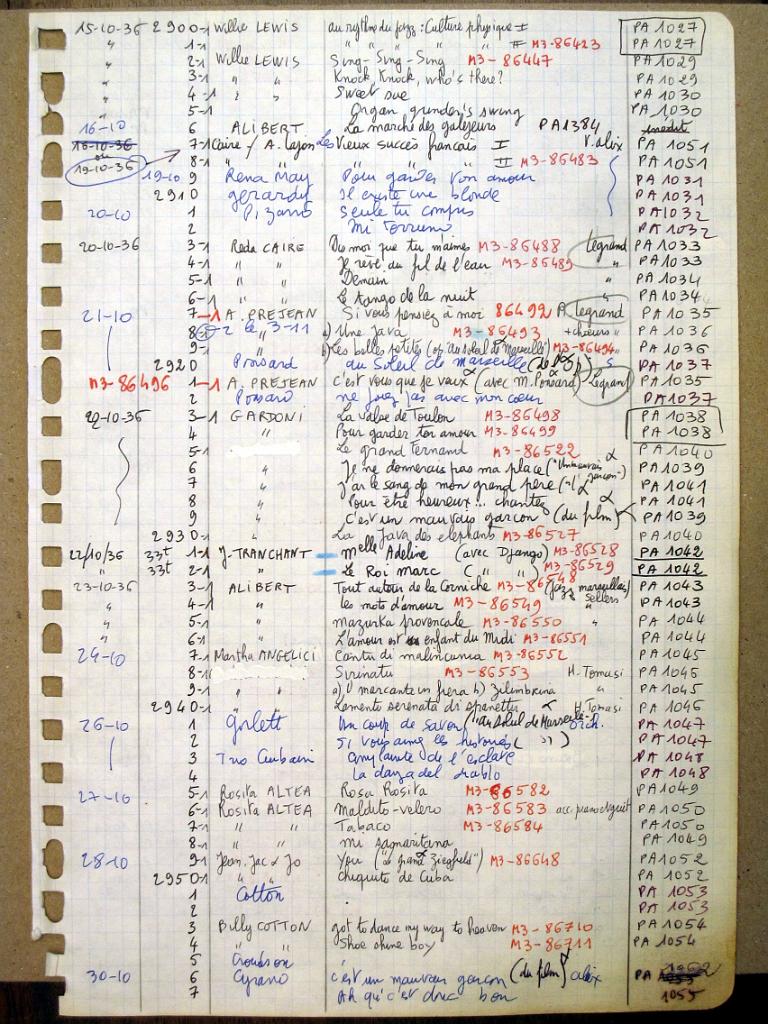 15-10-36 2900-1 Willie LEWIS au rythme du jazz : Culture physique I PA 1027
" 1-1 " " " " " II M3-86423 PA 1027
" 2-1 Willie LEWIS Sing-Sing-Sing M3-86447 PA 1029
" 3-1 " " Knock, Knock, who's there? PA 1029
" 4-1 " " Sweet sue PA 1030
" 5-1 Organ grinder's swing PA 1030
16-10 6 ALIBERT La marche des galéjeurs PA 1384 inédit
16-10-36 7-1 Caire / A. Lajon Les Vieux succès français I V. alix PA 1051
ou 19-10-36 8-1 " " II M3-86483 PA 1051
19-10 9 Rena May Pour garder ton amour PA 1031
2910 gerardy Il existe une blonde PA 1031
20-10 1 Pizarro Seule tu compris PA 1032
2 Mi Terruno PA 1032
20-10-36 3-1 Reda CAIRE Dis moi que tu m'aimes M3-86488 Legrand PA 1033
4-1 " " Je rêve au fil de l'eau M3-86489 " PA 1033
5-1 " " Demain " PA 1034
6-1 " " Le tango de la nuit PA 1034
21-10 7-1 A. PREJEAN Si vous pensiez à moi 86492 A. Legrand PA 1035
8-2 le 3-11 " a) Une java M3-86493 + chœurs " PA 1036
9-1 " b) Les belles petites (op "au soleil de Marseille") M3-86494 " PA 1036
2920 Ponsard au Soleil de Marseille (de l'op) PA 1037
M3-86496 1-1 A. PREJEAN c'est vous que je veux (avec M. Ponsard) Legrand PA 1035
2 Ponsard ne jouez pas avec mon cœur PA 1037
22-10-36 3-1 GARDONI La valse de Toulon M3-86498 PA 1038
4 " Pour garder ton amour M3-86499 PA 1038
5-1 Le grand Fernand M3-86522 PA 1040
6 " Je ne donnerais pas ma place ("Un mauvais garçon") PA 1039
7 " J'ai le sang de mon grand père ("") PA 1041
8 " Pour être heureux... chantez PA 1041
9 " c'est un mauvais garçon (du film) PA 1039
2930-1 La Java des elephants M3-86527 PA 1040
22/10/36 33t 1-1 J. TRANCHANT Melle Adeline (avec Django) M3-86528 PA 1042
" 33t 2-1 " Le Roi Marc ( " " ) M3-86529 PA 1042
23-10-36 3-1 ALIBERT Tout autour de la Corniche M3-86548 (Jazz marseillais) PA 1043
" 4-1 " les mots d'amour M3-86549 Sellers PA 1043
" 5-1 " mazurka provencale M3-86550 " PA 1044
" 6-1 " L'amour est enfant du Midi M3-86551 PA 1044
24-10 7-1 Martha ANGELICI Cantu di malincunia M3-86552 PA 1045
8-1 Sirinatu M3-86553 H. Tomasi PA 1046
9-1 " " a) U marcante in fiera b) Zilimbrina " PA 1045
2940-1 " " Lamento serenata di spanettu H. Tomasi PA 1046
26-10 1 Gorlett Un coup de savon ("au soleil de Marseille") orch. PA 1047
2 Si vous aimez les histoires ( " ) PA 1047
3 Trio Cubain Complainte de l'esclave PA 1048
4 la danza del diablo PA 1048
27-10 5-1 Rosita ALTEA Rosa Rosita M3-86582 PA 1049
6-1 Rosita ALTEA Maldito-velero M3-86583 acc. piano et guit PA 1050
7-1 " " Tabaco M3-86584 PA 1050
8-1 " " mi samaritana PA 1049
28-10 9-1 Jean, Jac & Jo You ("le grand Ziegfeld") M3-86648 PA 1052
2950-1 " " chiquito de Cuba PA 1052
1 Cotton PA 1053
2 PA 1053
3 Billy COTTON got to dance my way to heaven M3-86710 PA 1054
4 " " Shoe shine boy M3-86711 PA 1054
5
30-10 6 Cyrano c'est un mauvais garçon (du film) alix PA
7 Ah qu'c'est donc bon 1055